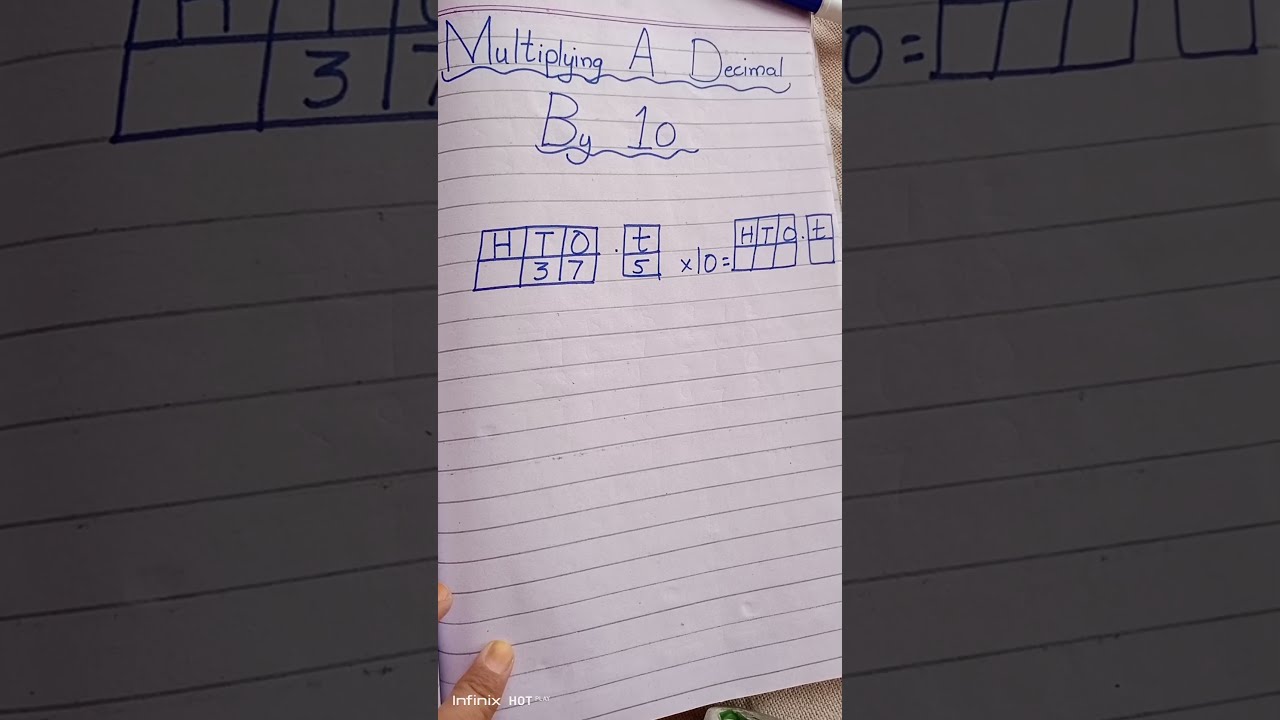 Multiplying A Decimal
By 10
H T O . t H T O . t
3 7 5 x10=
Infinix HOT PLAY